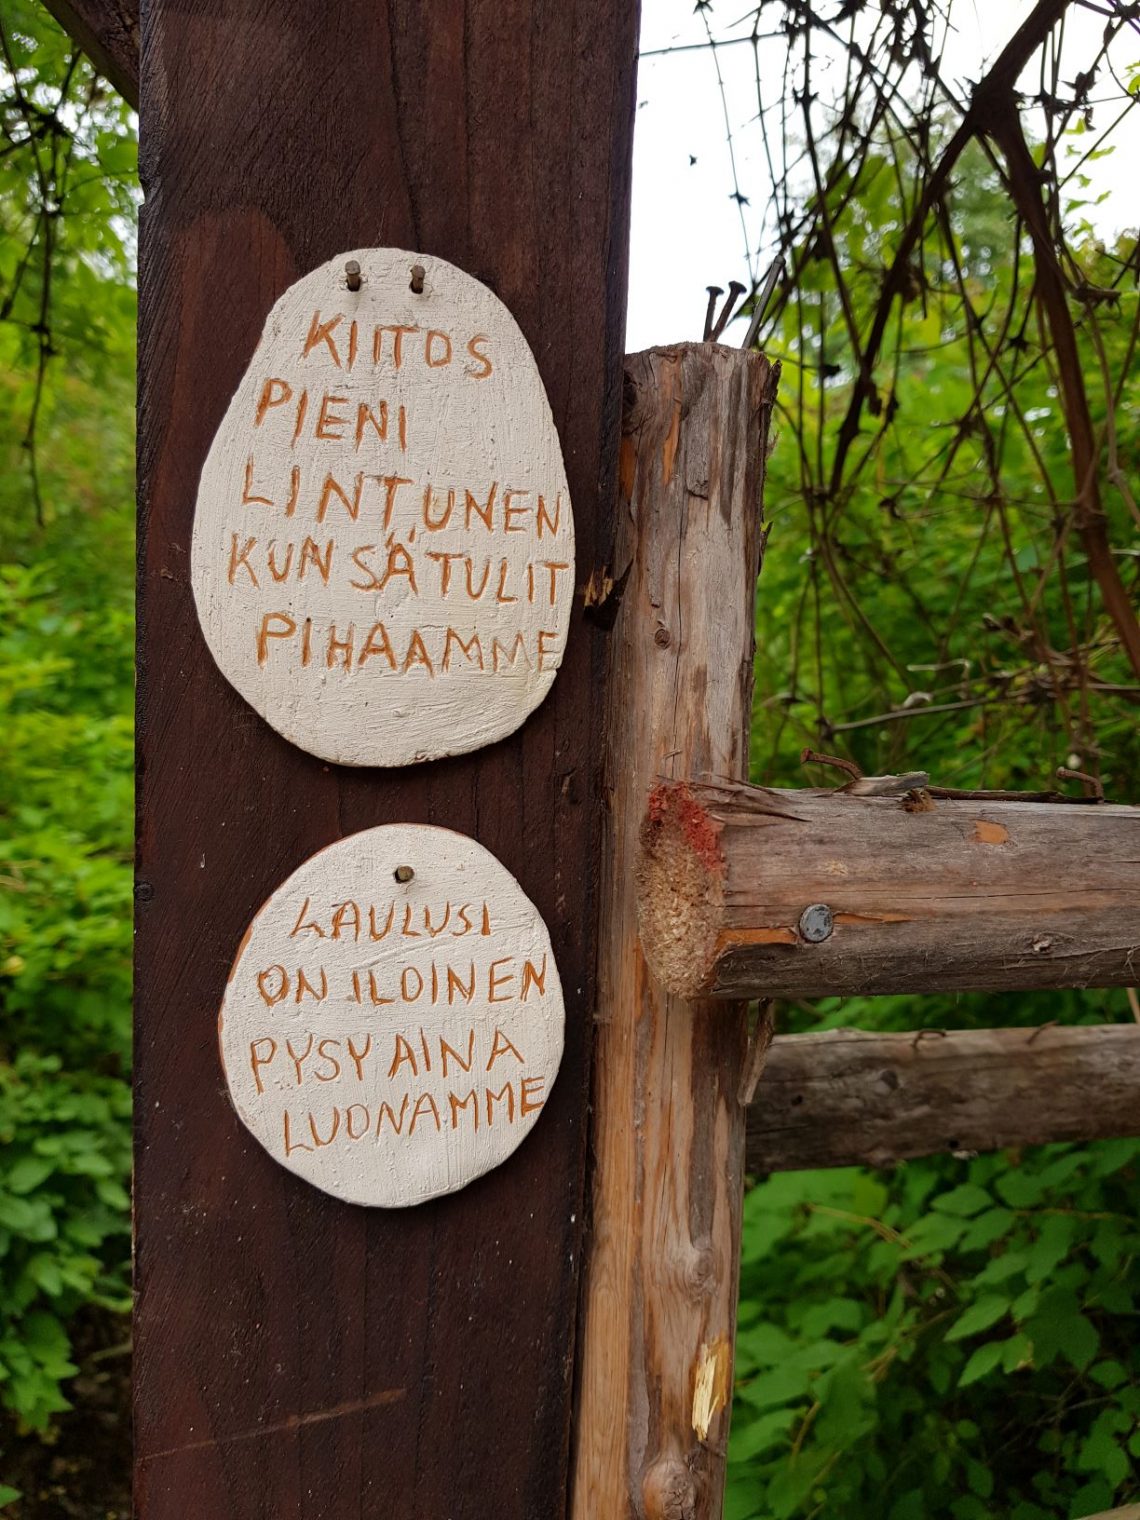 KIITOS
PIENI
LINTUNEN
KUN SÄ TULIT
PIHAAMME
LAULUSI
ON ILOINEN
PYSY AINA
LUONAMME